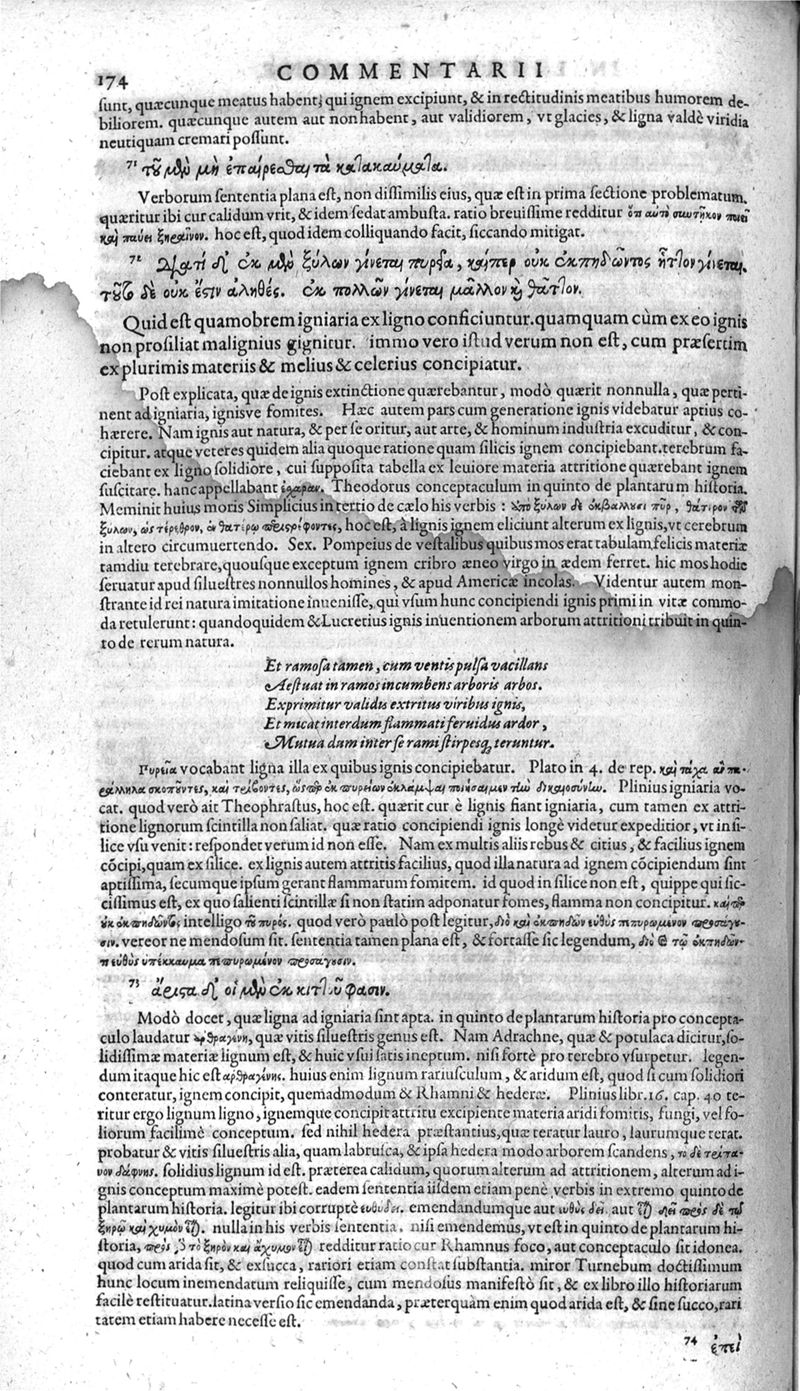 174 COMMENTARII
sunt, quæcunque meatus habent, qui ignem excipiunt, & in rectitudinis meatibus humorem de-
biliorem. quæcunque autem aut non habent, aut validiorem, vt glacies, & ligna valdè viridia
neutiquam cremari possunt.
71 τοῦ μὲν μὴ ἐπαίρεσθαι τὰ κατακαύματα.
Verborum sententia plana est, non dissimilis eius, quæ est in prima sectione problematum.
quæritur ibi cur calidum vrit, & idem sedat ambusta. ratio breuissime redditur
καὶ παύει ξηραῖνον. hoc est, quod idem colliquando facit, siccando mitigat.
72 Διατί δὲ ἐκ μὲν ξύλων γίνεται πυρεῖα, καίπερ οὐκ ἐκπηδῶντος ἧττον γίνεται.
τοῦτο δὲ οὐκ ἔστιν ἀληθές. ἐκ πολλῶν γίνεται μᾶλλον καὶ θᾶττον.
Quid est quamobrem igniaria ex ligno conficiuntur. quamquam cùm ex eo ignis
non prosiliat malignius gignitur. immo vero istud verum non est, cum præsertim
ex plurimis materiis & melius & celerius concipiatur.
Post explicata, quæ de ignis extinctione quærebantur, modò quærit nonnulla, quæ perti-
nent ad igniaria, ignisve fomites. Hæc autem pars cum generatione ignis videbatur aptius co-
hærere. Nam ignis aut natura, & per se oritur, aut arte, & hominum industria excuditur, & con-
cipitur. atque veteres quidem alia quoque ratione quam silicis ignem concipiebant. terebrum fa-
ciebant ex ligno solidiore, cui supposita tabella ex leuiore materia attritione quærebant ignem
suscitare. hanc appellabant ἐσχάραν. Theodorus conceptaculum in quinto de plantarum historia.
Meminit huius moris Simplicius in tertio de cælo his verbis : ἀπὸ ξύλων δὲ ἐκβάλλουσι πῦρ, θάτερον τῶν
ξύλων, ὡς τέρετρον, ἐν θατέρῳ περιστρέφοντες, hoc est, à lignis ignem eliciunt alterum ex lignis, vt cerebrum
in altero circumuertendo. Sex. Pompeius de vestalibus quibus mos erat tabulam felicis materiæ
tamdiu terebrare, quousque exceptum ignem cribro æneo virgo in ædem ferret. hic mos hodie
seruatur apud siluestres nonnullos homines, & apud Americæ incolas. Videntur autem mon-
strante id rei natura imitatione inuenisse, qui vsum hunc concipiendi ignis primi in vitæ commo-
da retulerunt : quandoquidem & Lucretius ignis inuentionem arborum attritioni tribuit in quin-
to de rerum natura.
Et ramosa tamen, cum ventis pulsa vacillans
Aestuat in ramos incumbens arboris arbos.
Exprimitur validus extritus viribus ignis,
Et micat interdum flammati feruidus ardor,
Mutua dum inter se rami stirpesq́ teruntur.
Πυρεῖα vocabant ligna illa ex quibus ignis concipiebatur. Plato in 4. de rep. καὶ τάχα ἂν πα-
ράλληλα σκοποῦντες, καὶ τρίβοντες, ὥσπερ ἐκ πυρείων ἐκλάμψαι ποιήσαιμεν τὴν δικαιοσύνην. Plinius igniaria vo-
cat. quod verò ait Theophrastus, hoc est. quærit cur è lignis fiant igniaria, cum tamen ex attri-
tione lignorum scintilla non saliat. quæ ratio concipiendi ignis longè videtur expeditior, vt in si-
lice vsu venit : respondet verum id non esse. Nam ex multis aliis rebus & citius, & facilius ignem
cōcipi, quam ex silice. ex lignis autem attritis facilius, quod illa natura ad ignem cōcipiendum sint
aptissima, secumque ipsum gerant flammarum fomitem. id quod in silice non est, quippe qui sic-
cissimus est, ex quo salienti scintillæ si non statim adponatur fomes, flamma non concipitur. καίπερ
οὐκ ἐκπηδῶντος intelligo τοῦ πυρός. quod verò paulò post legitur, διὸ καὶ ἐκπηδῶν εὐθὺς πεπυρωμένον προσάγου-
σιν. vereor ne mendosum sit. sententia tamen plana est, & fortasse sic legendum, διὸ τῷ ἐκπηδῶν-
τι εὐθὺς ὑπέκκαυμα πεπυρωμένον προσάγουσιν.
73 ἄριστα δὲ οἱ μὲν ἐκ κιττοῦ φασιν.
Modò docet, quæ ligna ad igniaria sint apta. in quinto de plantarum historia pro concepta-
culo laudatur ἀθραγένη, quæ vitis siluestris genus est. Nam Adrachne, quæ & potulaca dicitur, so-
lidissimæ materiæ lignum est, & huic vsui satis ineptum. nisi fortè pro terebro vsurpetur. legen-
dum itaque hic est ἀθραγένης. huius enim lignum rariusculum, & aridum est, quod si cum solidiori
conteratur, ignem concipit, quemadmodum & Rhamni & hederæ. Plinius libr. 16. cap. 40 te-
ritur ergo lignum ligno, ignemque concipit attritu excipiente materia aridi fomitis, fungi, vel fo-
liorum facilimè conceptum. sed nihil hedera præstantius, quæ teratur lauro, laurumque terat.
probatur & vitis siluestris alia, quam labrusca, & ipsa hedera modo arborem scandens, τὸ δὲ τρύπα-
νον δάφνης. solidius lignum id est. præterea calidum, quorum alterum ad attritionem, alterum ad i-
gnis conceptum maximè potest. eadem sententia iisdem etiam penè verbis in extremo quinto de
plantarum historia. legitur ibi corruptè εὐθυδεῖ. emendandumque aut εὐθὺς δεῖ. aut
ξηρῷ καὶ χυμὸν nulla in his verbis sententia. nisi emendemus, vt est in quinto de plantarum hi-
storia, πρὸς τὸ ξηρὸν καὶ ἄχυμον redditur ratio cur Rhamnus foco, aut conceptaculo sit idonea.
quod cum arida sit, & exsucca, rariori etiam constat substantia. miror Turnebum doctissimum
hunc locum inemendatum reliquisse, cum mendosus manifestò sit, & ex libro illo historiarum
facilè restituatur. latina versio sic emendanda, præterquam enim quod arida est, & sine succo, rari
tatem etiam habere necesse est.
74 ἐπεὶ